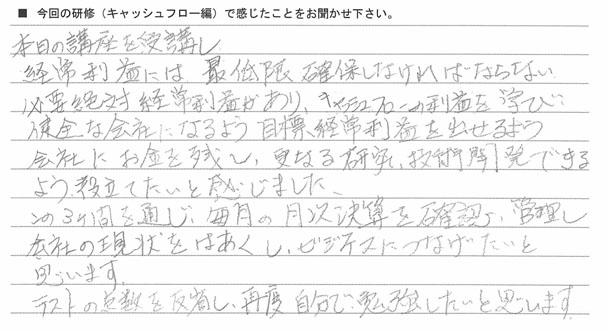 ■ 今回の研修（キャッシュフロー編）で感じたことをお聞かせ下さい。
本日の講座を受講し
経常利益には、最低限確保しなければならない
必要絶対経常利益があり、キャッシュフローの利益を学び
健全な会社になるよう目標経常利益を出せるよう
会社にお金を残し、更なる研究、技術開発できる
よう役立てたいと感じました。
この3ヶ間を通じ、毎月の月次決算を確認し、管理し
会社の現状をはあくし、ビジネスにつなげたいと
思います。
テストの点数を反省し、再度自分で勉強したいと思います